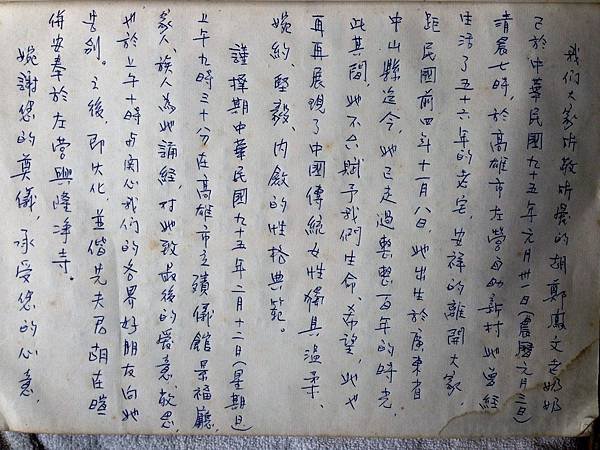 我们大家所敬所愛的胡鄭鳳文老奶奶
已於中華民國九十五年元月卅一日(農曆元月三日)
清晨七時,於高雄市左營自助新村她曾經
生活了五十六年的老宅,安祥的離開大家,
距民國前四年十一月八日,她出生於廣東省
中山縣迄今,她已走過整整百年的時光
此其間,她不只賦予我們生命、希望,她也
再再展現了中國傳統女性獨具溫柔、
婉約堅毅、內斂的性格典範。
謹擇期中華民國九十五年二月十二日(星期日)
上午九時三十分在高雄市立殯儀館景福廳,
家人、族人為她誦經,對她致最後的愛意、歉思,
也於上午十時与関心我們的各界好朋友向她
告別。之後,即火化,並偕先夫君胡在暄
併安奉於左營興隆净寺。
婉謝您的奠儀,承受您的心意,